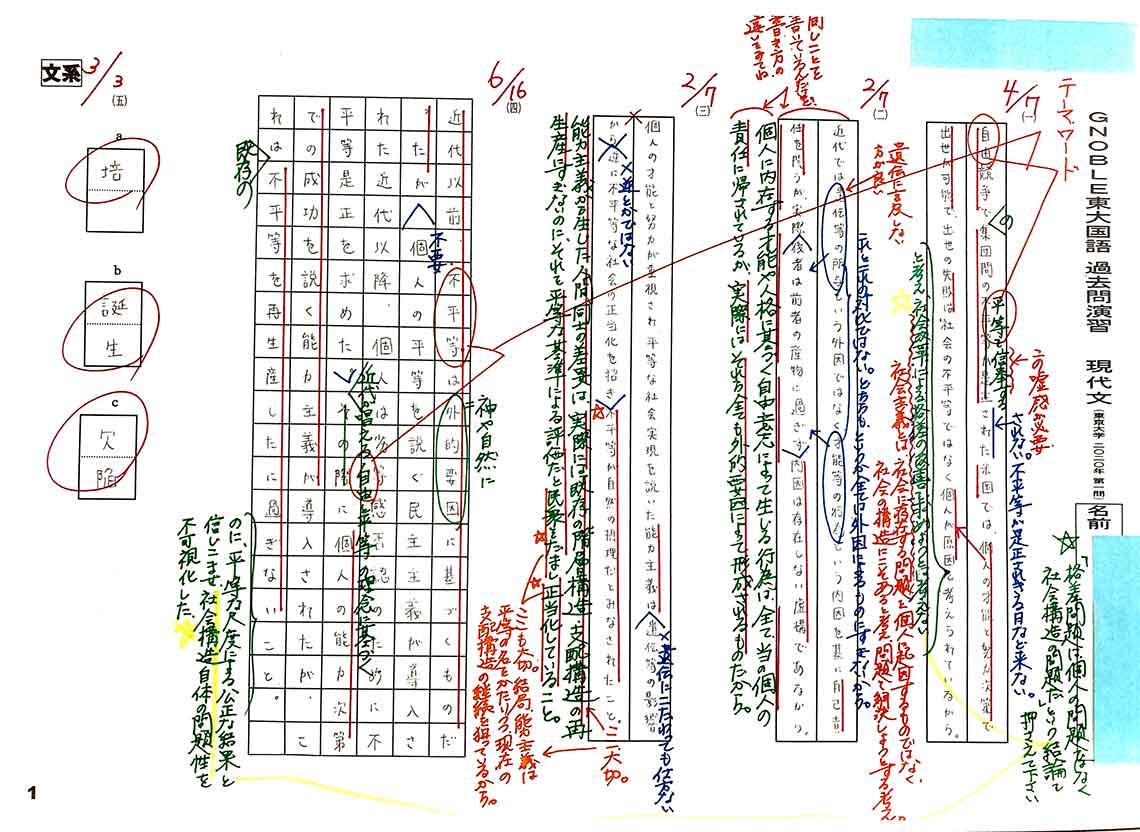 GNOBLE東大国語 過去問演習 現代文 (東京大学 二〇二〇年 第一問)
名前
☆「格差問題は個人の問題でなく
社会構造の問題だ」という結論で
押さえて下さい
4/7
(一)
テーマワード
自由競争で集団間の不平等が是正された米国では、個人の才能と努力次第で
出世が可能で、出世の失敗は社会の不平等ではなく個人が原因と考えられているから。
の
平等を信奉する
この嘘感が必要
されない。不平等が是正されきる日など来ない。
と考え、社会の変革による格差の改善を求めようとは考えない
社会主義とは、社会に存在する問題を個人に起因するものではなく、
社会の構造にこそあると考え問題を解決しようとする考え。
2/7
(二)
近代では遺伝等の所与という外因ではなく才能等の将来という内因を基に自己責
任を問うが、実際後者は前者の産物に過ぎず、内因は存在しない虚構であるから。
遺伝に言及しない
方が良い
これとこれの対比ではない。どちらも、というか全ては外因によるものにすぎないから。
個人に内在する才能や人格に基づく自由意志によって生じる行為は、全て当の個人の
責任に帰されているが、実際にはそれら全ても外的要因によって形成されるものだから。
同じことを
書いているんだけど、
書き方の
違いですね
2/7
(三)
個人の才能と努力が重視され、平等な社会実現を説いた能力主義は、遺伝等の影響
から逆に不平等な社会の正当化を招き、不平等が自然の摂理だとみなされたこと。
×遺伝にこだわっても仕方ない
×逆とかではない
能力主義が生した人間同士の差異は、実際には既存の階層構造、支配構造の再
生産にすぎないのにそれを平等な基準による評価だと民衆をだまし正当化していること。
ここ大切。
☆ここも大切。結局、能力主義は
平等の名をかたりつつ、現在の
支配構造の継続を狙っているから。
6/16
(四)
近代以前、不平等は外的要因に基づくものだ
ったが、個人の平等を説く民主主義が導入さ
れた近代以降、個人は劣等感否認のために不
平等是正を求めた。その際に個人の能力次第
での成功を説く能力主義が導入されたが、こ
れは不平等を再生産したに過ぎないこと。
神や自然に
不要
近代が唱える自由と平等の理念に基づく
既存の
のに、平等な尺度による公正な結果と
信じこませ、社会構造自体の問題性を
不可視化した。
文系
3/3
(五)
a
培
b
誕生
c
欠陥
1